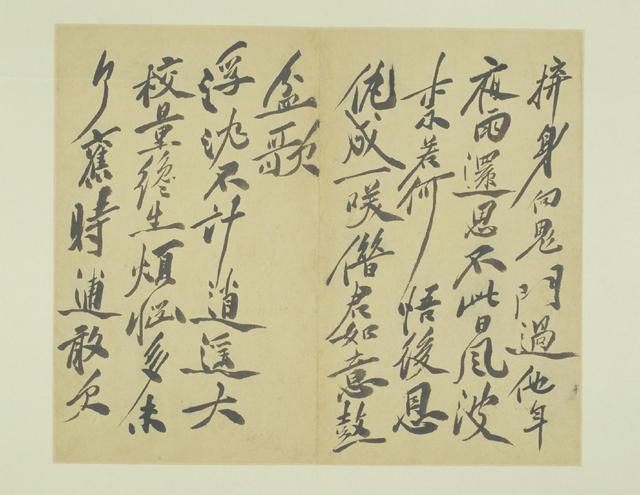 身向鬼門過他年
夜雨還思不此日風波
若何 悟後恩
仇成一咲借君如意鼓
盆歌
浮沈不計逍遙大
校量終生煩惱多未
了舊時逋敢欠